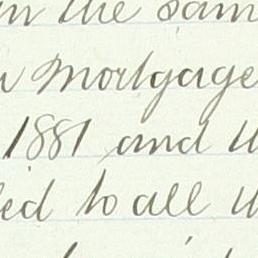 in the sam
Mortgage
1881 and
to all